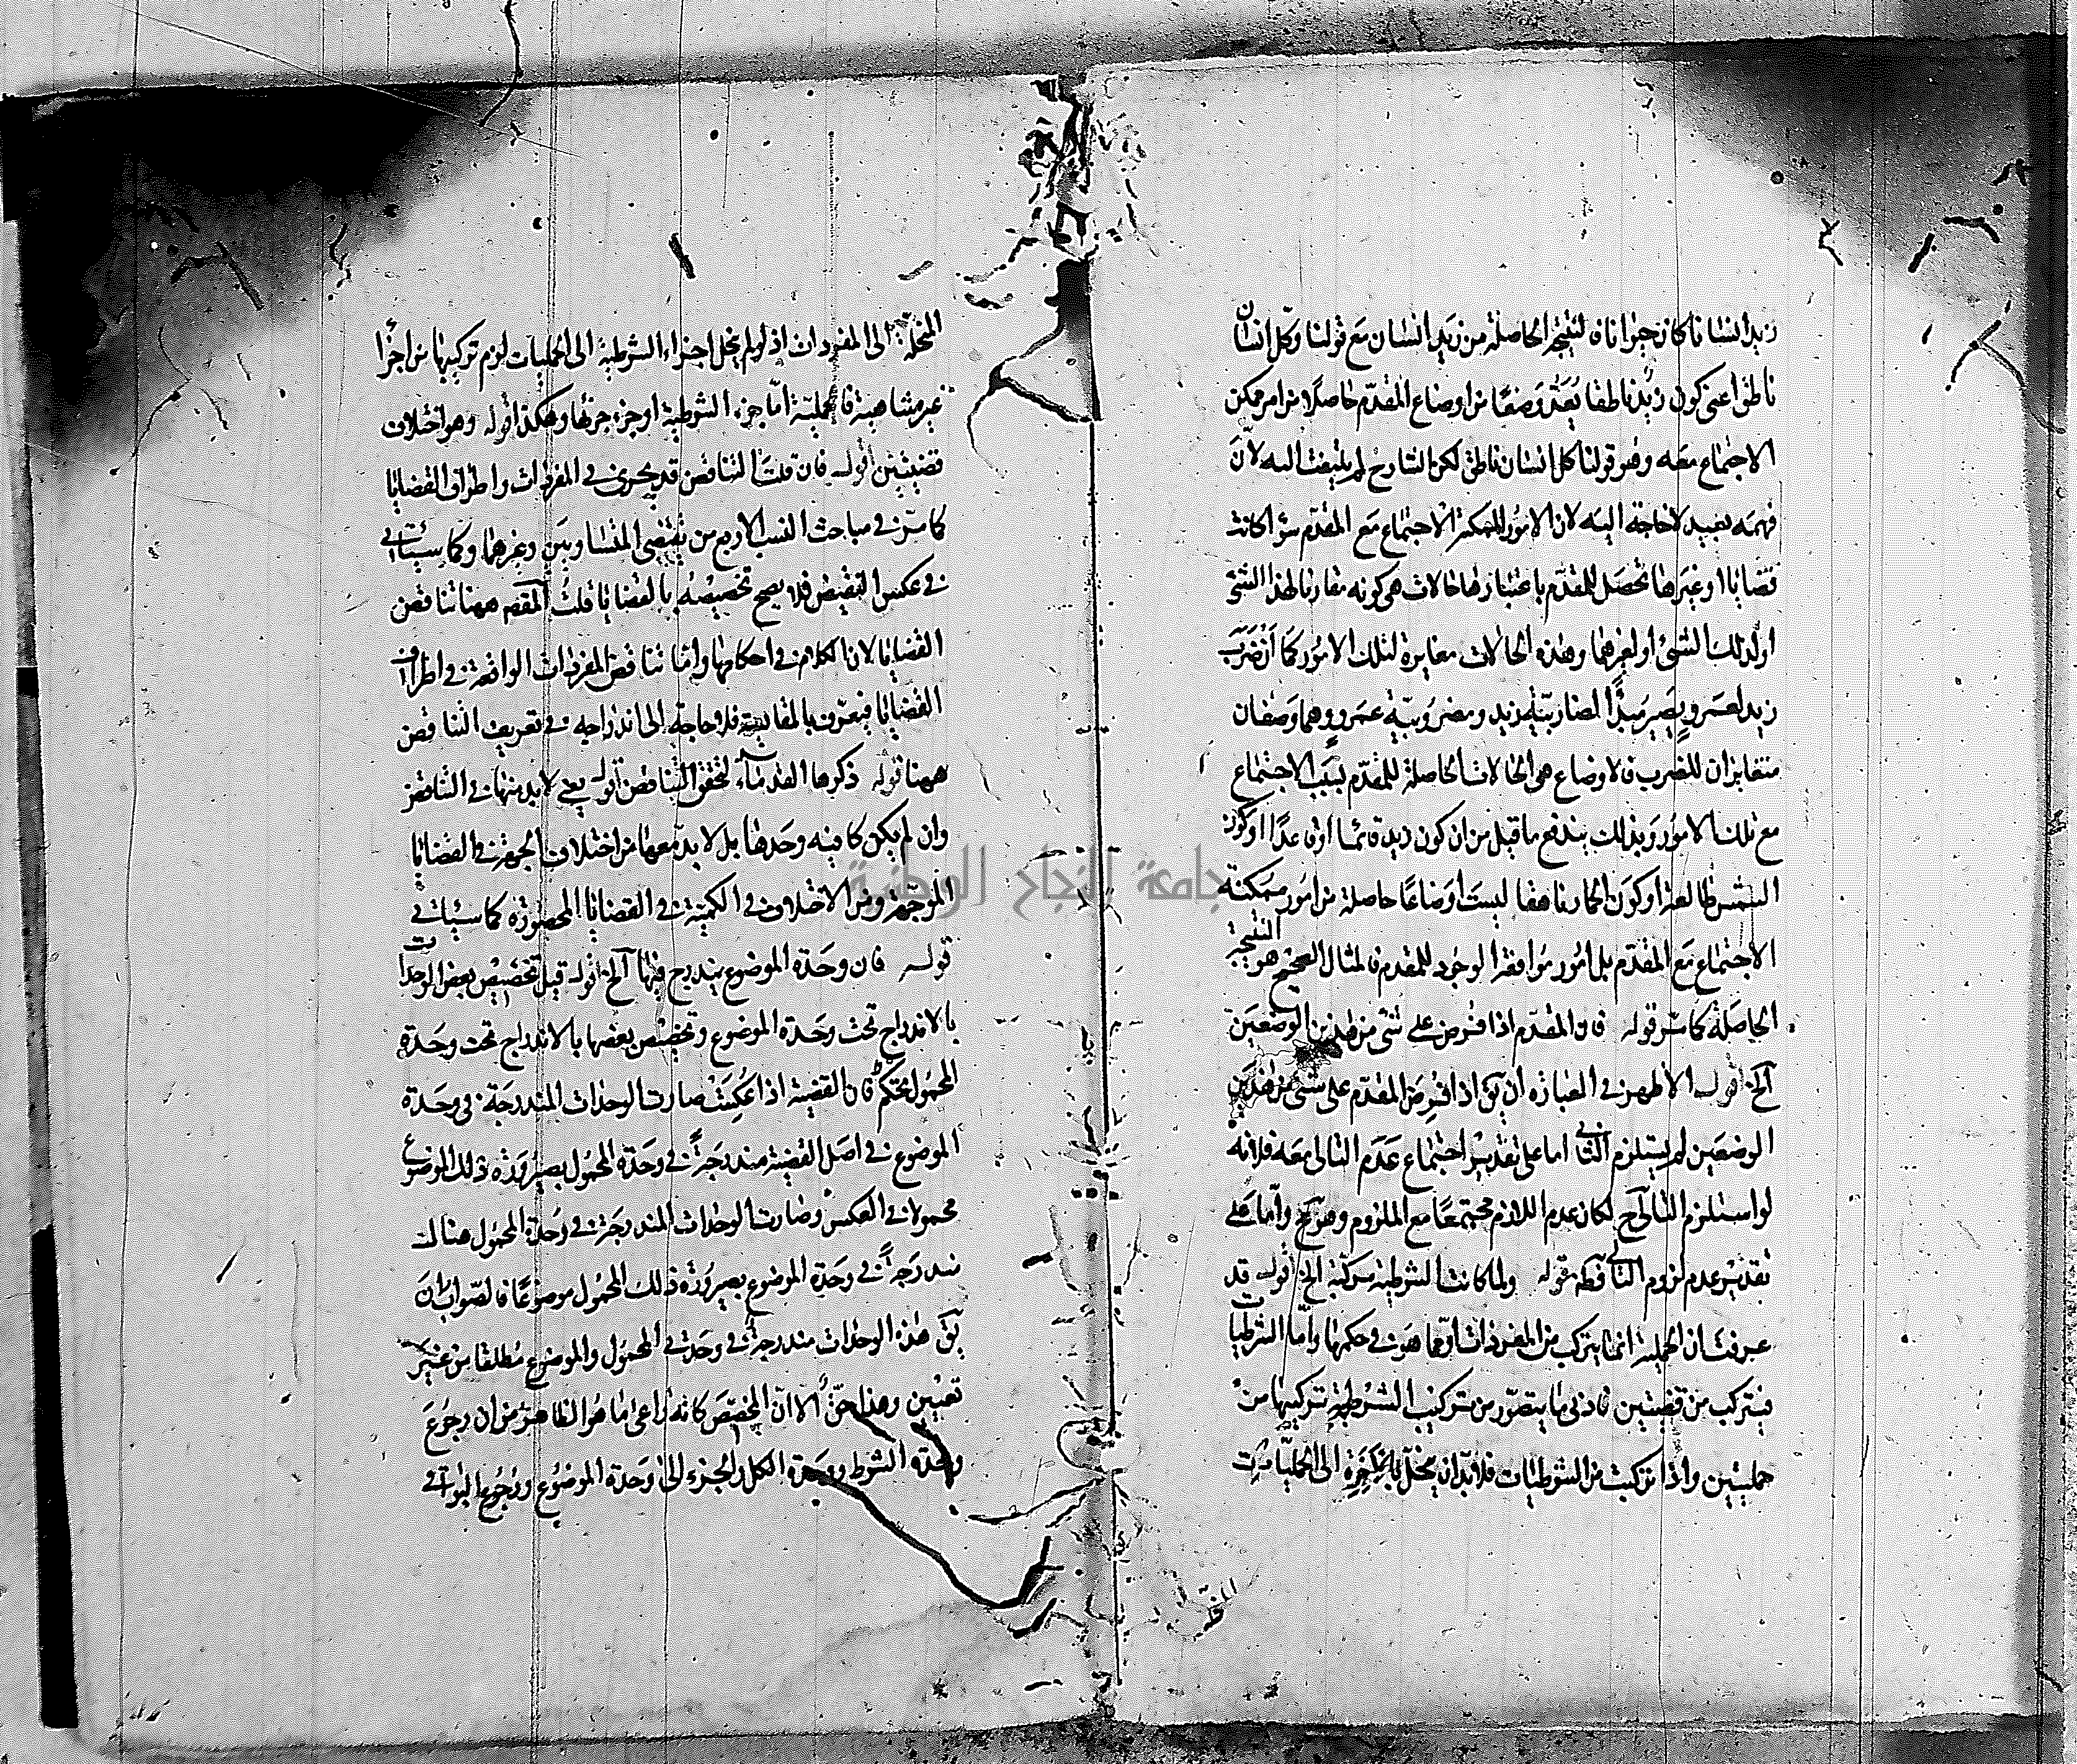 زيد انسانا كان حيوانا فالنتيجة الحاصلة من زيد انسان مع قولنا وكل انسان
ناطق اعنى كون زيد ناطقا يعد وضعا من اوضاع المقدم حاصلا من امر ممكن
الاجتماع معه وهو قولنا كل انسان ناطق لكن الشارح لم يلتفت اليه لان
فهمه بعيد لا حاجة اليه لان الامور الممكنة الاجتماع مع المقدم سواء كانت
قضايا او غيرها تحصل للمقدم باعتبارها حالات هى كونه مقارنا لهذا الشئ
او لذلك الشئ او لغيرهما وهذه الحالات مغايرة لتلك الامور كما ان ضرب
زيد لعمرو يصير مبدأ لضاربية زيد ومضروبية عمرو وهما وصفان
متغايران للضرب فالاوضاع هى الحالات الحاصلة للمقدم بسبب الاجتماع
مع تلك الامور وبذلك يندفع ما قيل من ان كون زيد قائما او قاعدا او كون
الشمس طالعة او كون الحمار ناهقا ليست اوضاعا حاصلة من امور ممكنة
الاجتماع مع المقدم بل امور موافقة الوجود للمقدم فالمثال الصحيح هو النتيجة
الحاصلة كما مر قوله فان المقدم اذا فرض على شئ من هذين الوضعين
آلخ اقول الاظهر فى العبارة ان يق اذا فرض المقدم على شئ من هذين
الوضعين لم يستلزم التالى اما على تقدير اجتماع عدم التالى معه فلانه
لو استلزم التالى ح لكان عدم اللازم مجتمعا مع الملزوم وهو مح واما على
تقدير عدم لزوم التالى فظ قوله ولما كانت الشرطية مركبة الخ اقول قد
عرفت ان الحملية انما يتركب من المفردات او مما هو فى حكمها واما الشرطيات
فيتركب من قضيتين فادنى ما يتصور من تركيب الشرطية تركيبها من
حمليتين واذا تركبت من الشرطيات فلابد ان ينحل بالاخرة الى الحمليات
المنحلة الى المفردات اذ لو لم ينحل اجزاء الشرطية الى الحمليات لزم تركيبها من اجزا
غير متناهية فالحملية اما جزء الشرطية او جزء جزئها وهكذا قوله وهو اختلاف
قضيتين اقول فان قلت التناقض قد يجرى فى المفردات واطراف القضايا
كما مر فى مباحث النسب الاربع من نقيضى المتساويين وغيرهما وكما سيأتى
فى عكس النقيض فلا يصح تخصيصه بالقضايا قلت المقصم ههنا تناقض
القضايا لان الكلام فى احكامها واما تناقض المفردات الواقعة فى اطراف
القضايا فيعرف بالمقايسة فلا حاجة الى اندراجه فى تعريف التناقض
ههنا قوله ذكرها القدماء لتحقق التناقض اقول يعنى لابد منها فى التناقض
وان لم يكن كافيه وحدها بل لابد معها من اختلاف الجهة فى القضايا
الموجهة ومن الاختلاف فى الكمية فى القضايا المحصورة كما سيأتى
قوله فان وحدة الموضوع يندرج فيها آلخ اقول قيل تخصيص بعض الوحدات
بالاندراج تحت وحدة الموضوع وتخصيص بعضها بالاندراج تحت وحدة
المحمول تحكم فان القضية اذا عكست صارت الوحدات المندرجة فى وحدة
الموضوع فى اصل القضية مندرجة فى وحدة المحمول بصيرورة ذلك الموضوع
محمولا فى العكس وصارت الوحدات المندرجة فى وحدة المحمول هناك
مندرجة فى وحدة الموضوع بصيرورة ذلك المحمول موضوعا فالصواب ان
يق هذه الوحدات مندرجة فى وحدتى المحمول والموضوع مطلقا من غير
تعيين وهذا حق الا ان المخصص كانه راعى ما هو الظاهر من ان رجوع
وحدة الشرط ووحدة الكل والجزء الى وحدة الموضوع ورجوع البواقى
جامعة النجاح الوطنية